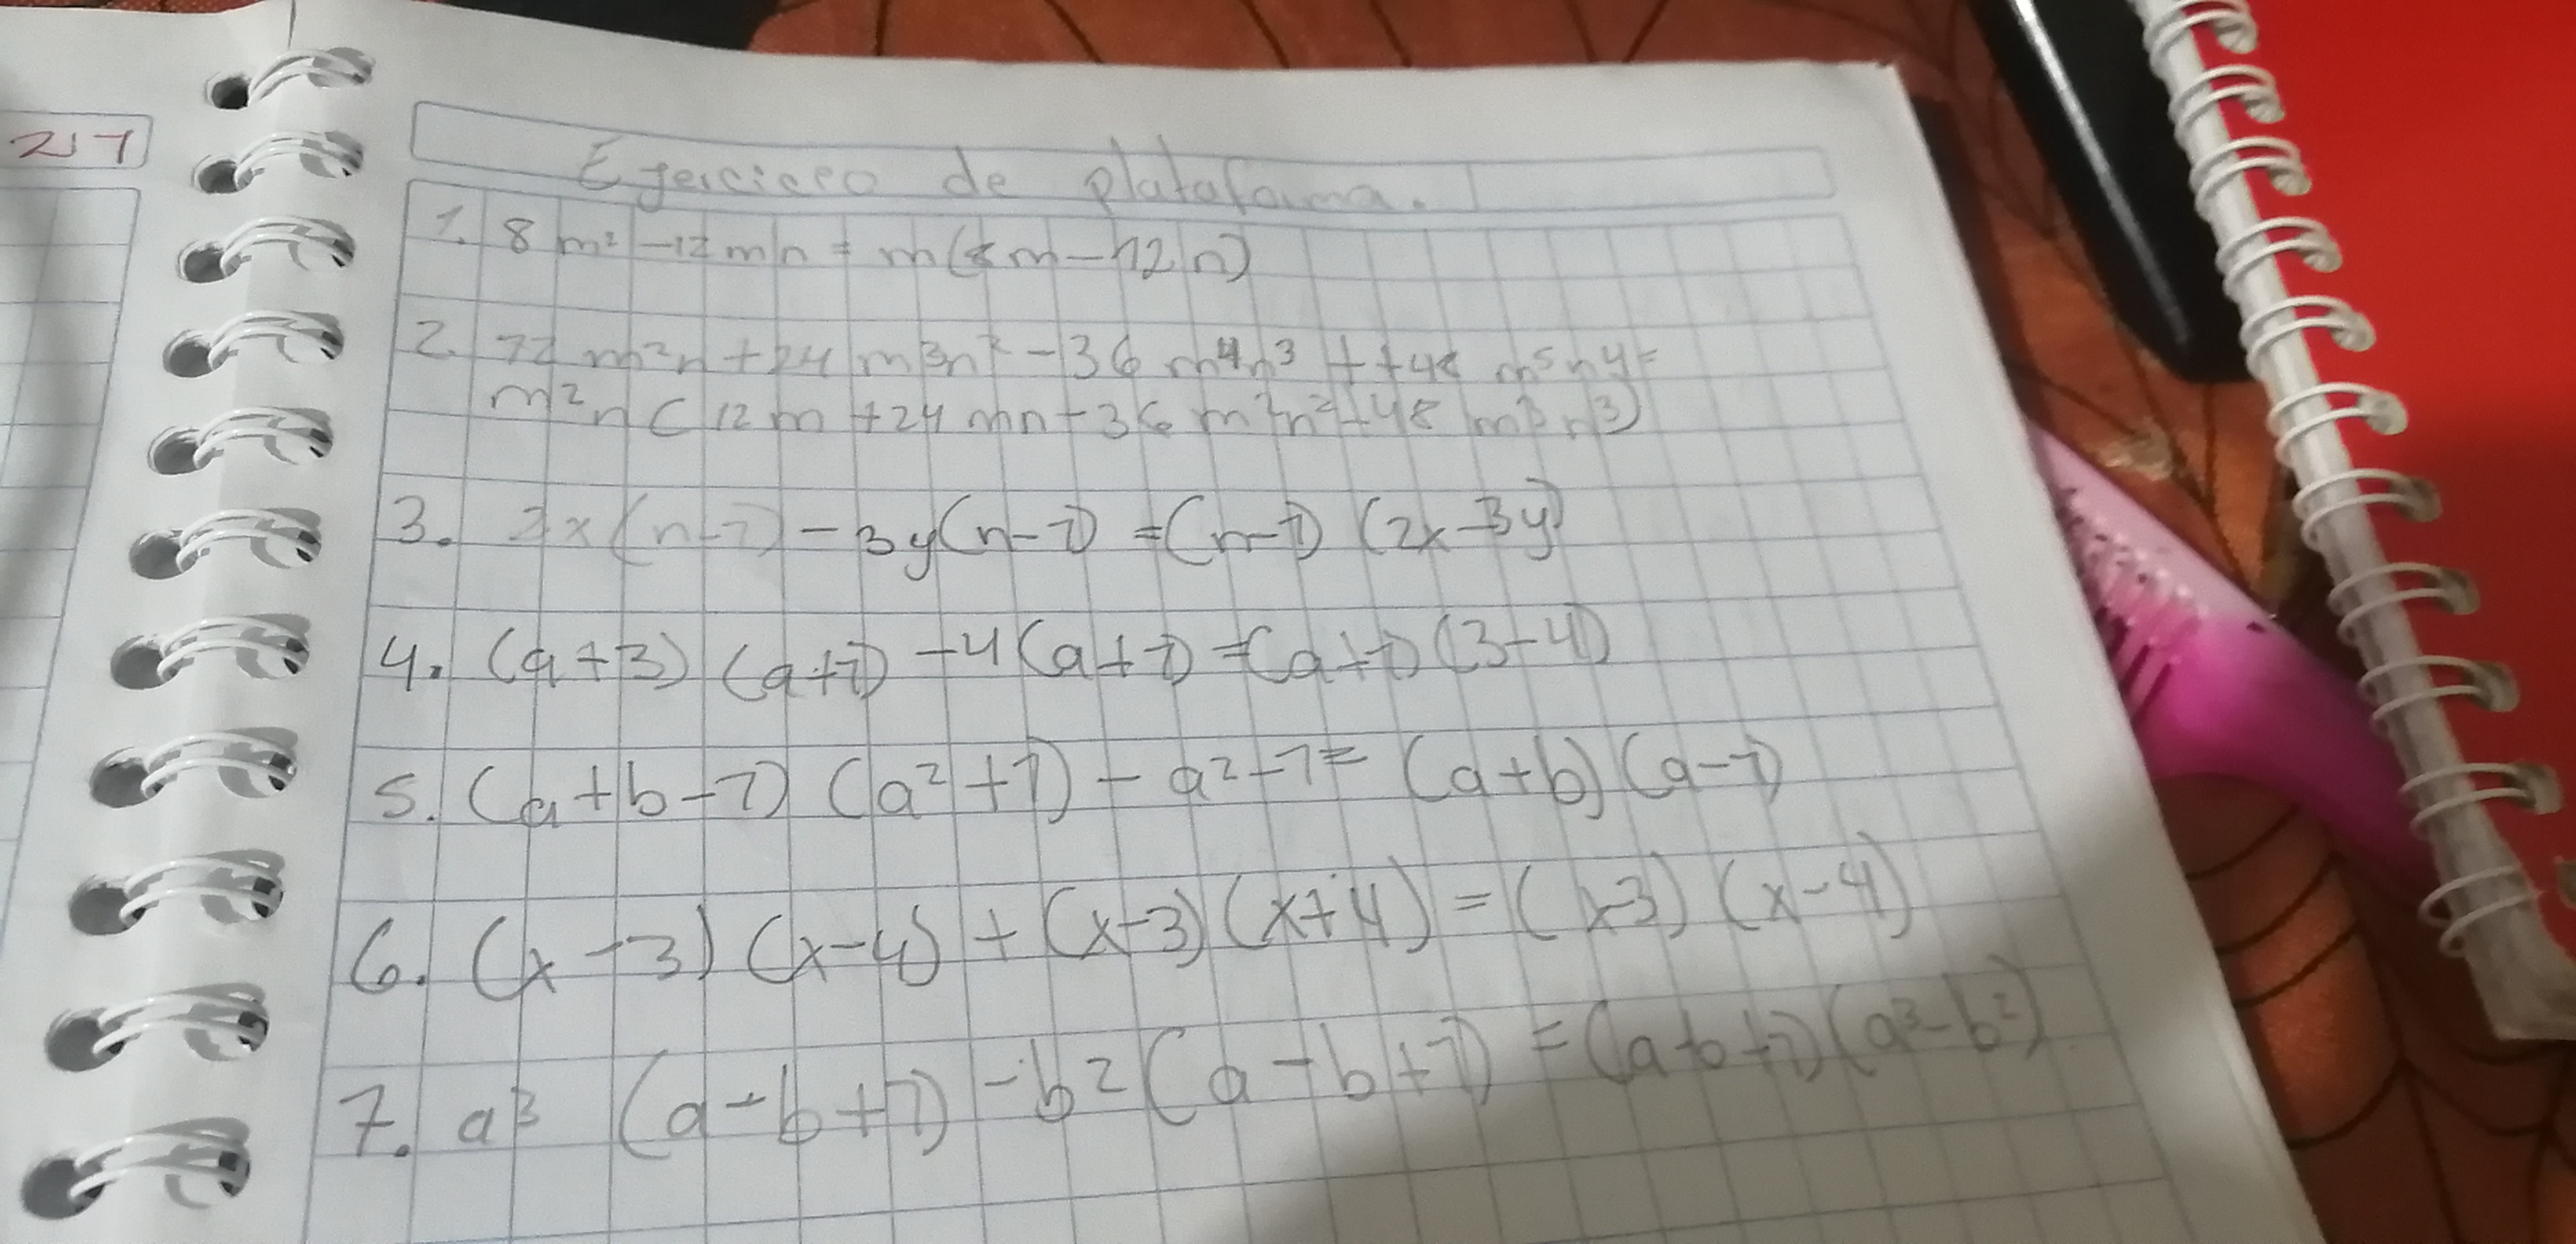 217
Ejercicio de plataforma.
1. 8 m² -12 mn = m(8m-12n)
2. 12 m²n +24 m³n² -36 m⁴n³ + +48 m⁵n4=
m²n (12m +24 mn-36 m²n²+48 m³n³)
3. 2x(n-1) - 3y(n-1) =(n-1) (2x-3y)
4. (a+3) (a+1) -4(a+1) =(a+1)(3-4)
5. (a+b-1) (a²+1) - a²-1= (a+b)(a-1)
6. (x-3) (x-4) + (x-3)(x+4) = (x-3) (x-4)
7. a³ (a-b+1) -b² (a-b+1) =(a-b+1)(a³-b²)